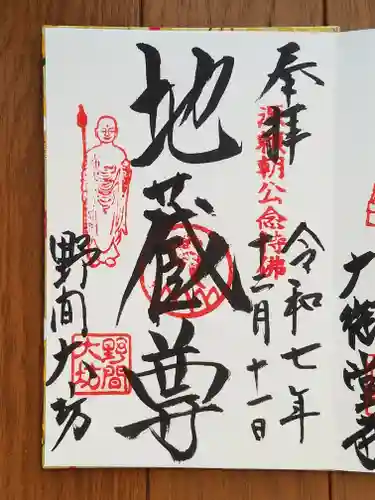 大御堂寺
奉拝
源頼朝公念持佛
令和七年
十二月十一日
地蔵尊
野間大坊
野間
大坊